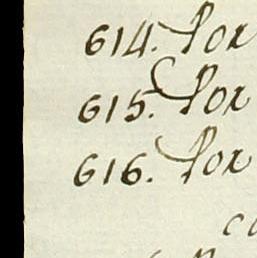 614. Por
615. Por
616. Por